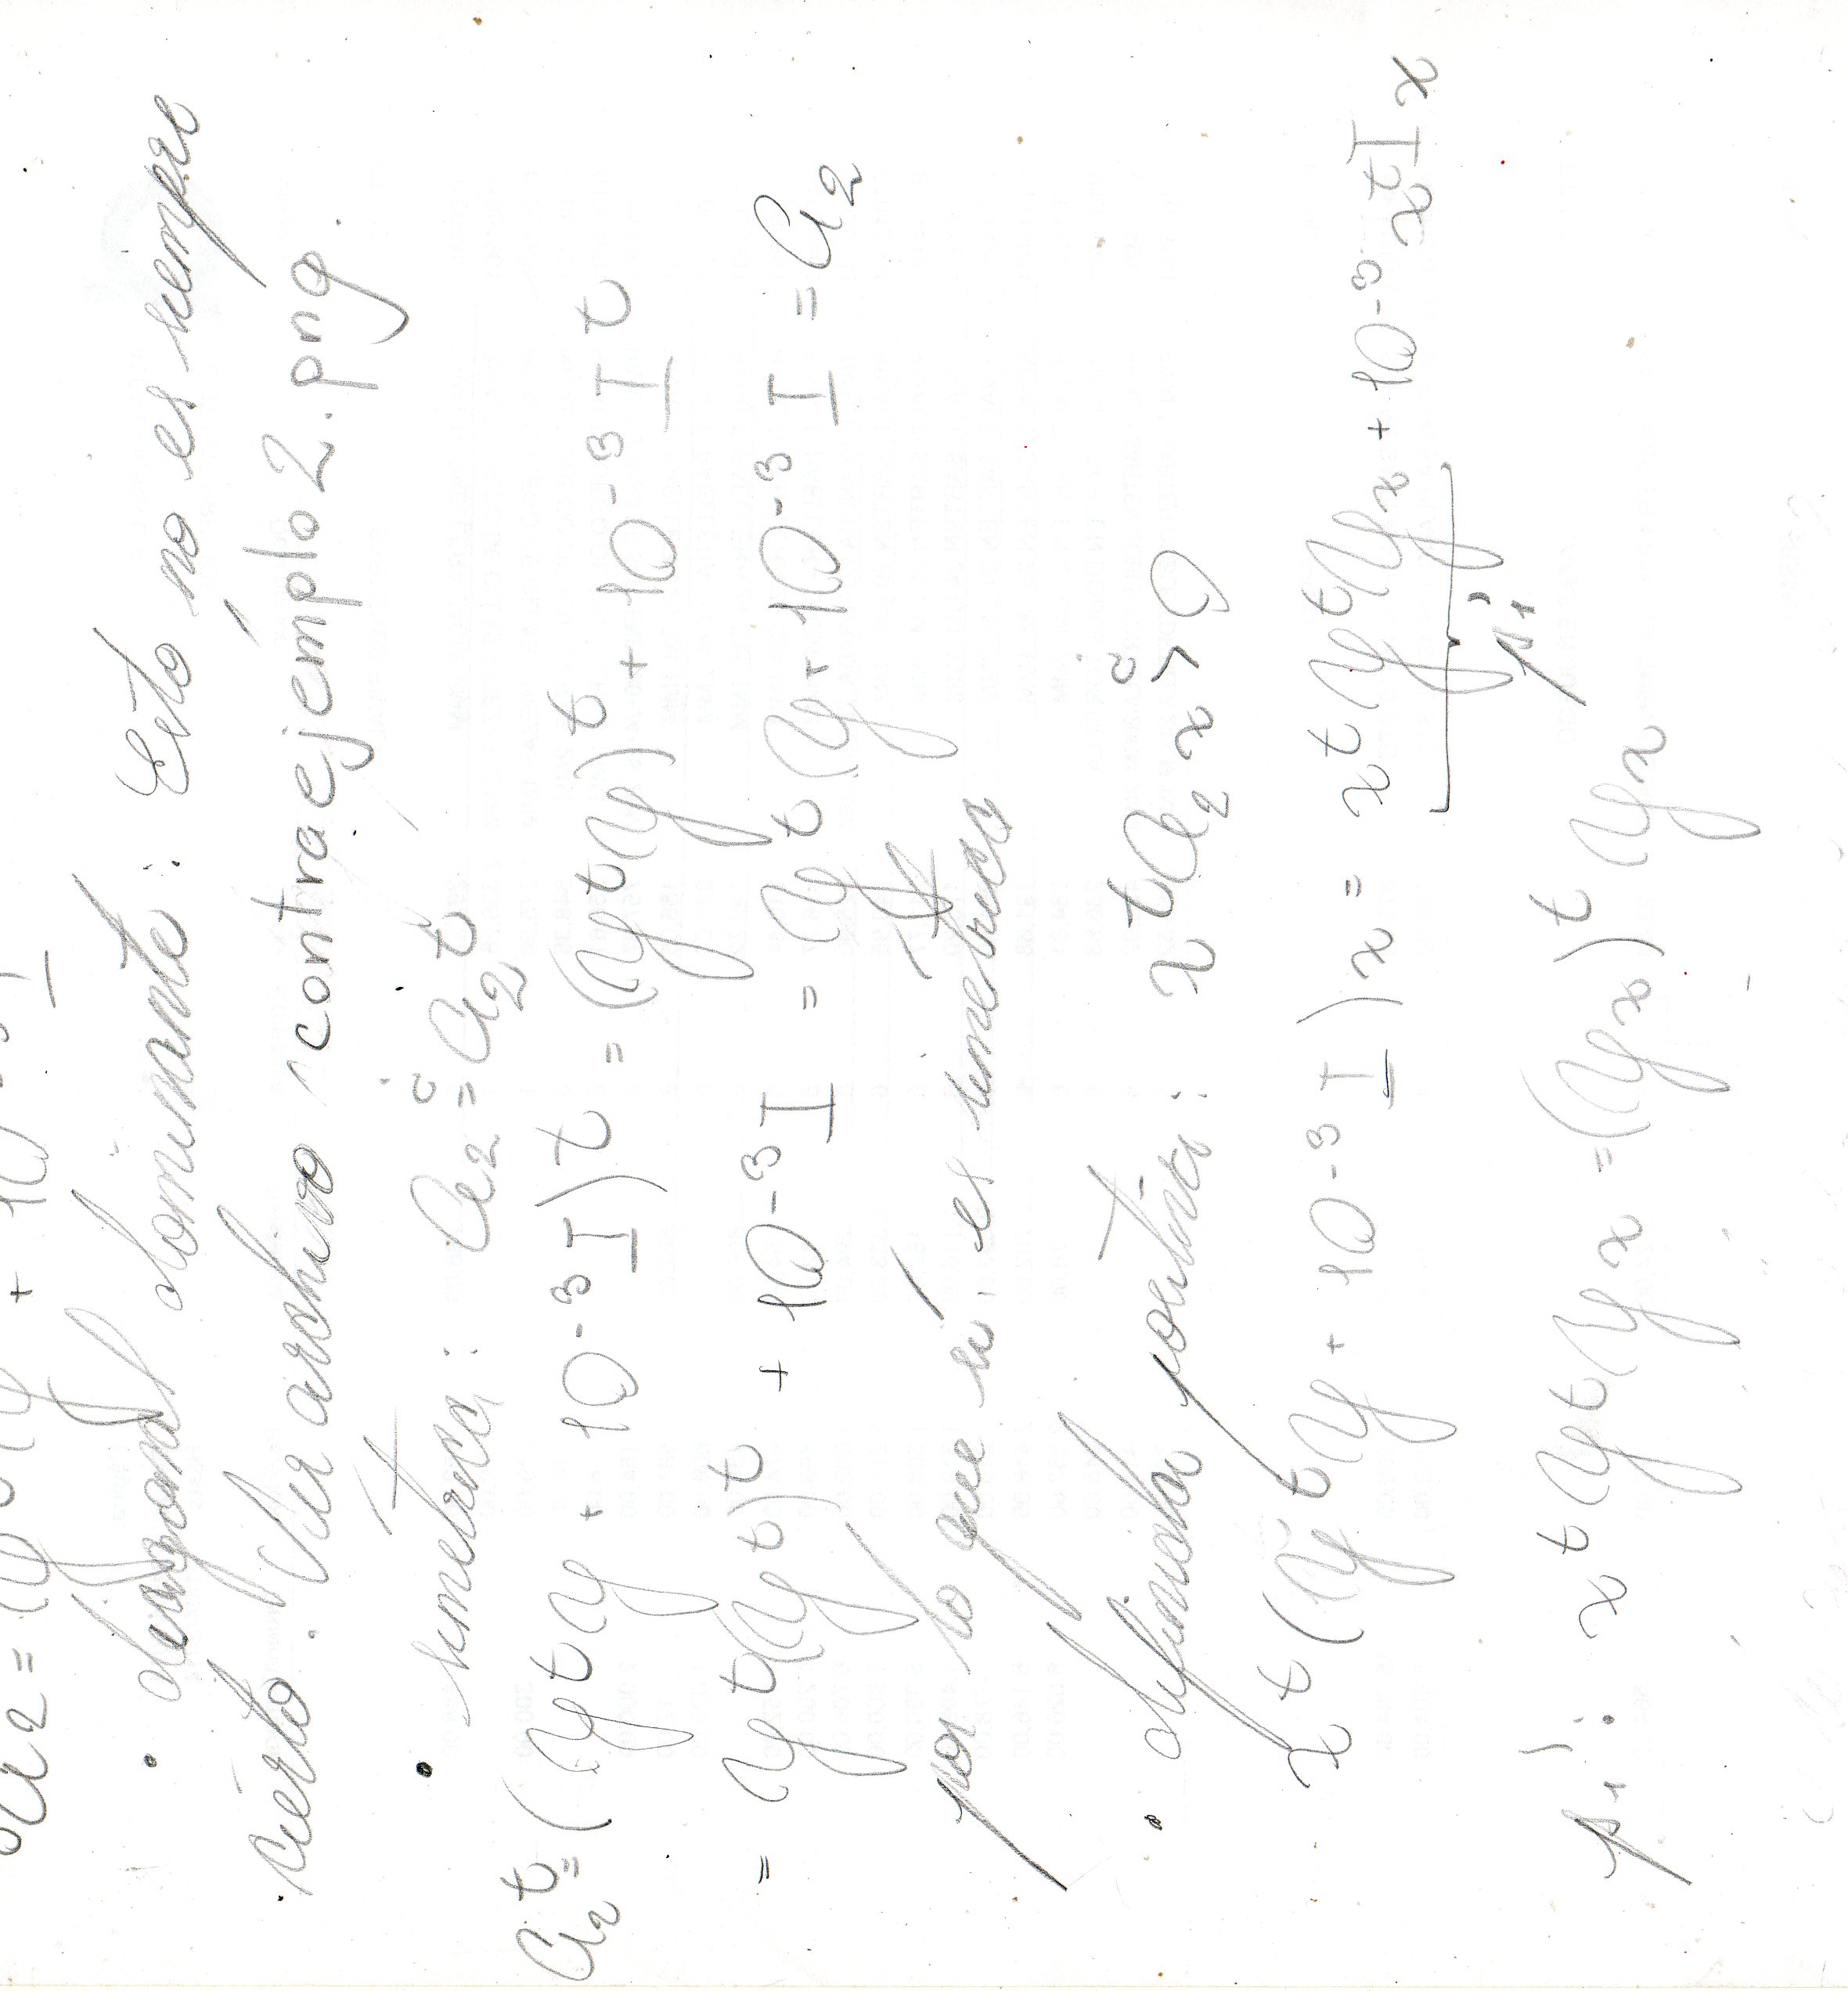 a₂ = (y t y + 10⁻³ I
• diagonal dominante: Esto no es siempre
cierto. Ver archivo contraejemplo2.png.
• simétrica: a₂ =¿ a₂ᵗ
a₂ᵗ = (yᵗy + 10⁻³ I)ᵗ = (yᵗy)ᵗ + 10⁻³ Iᵗ
= yᵗ(yᵗ)ᵗ + 10⁻³ I = yᵗy + 10⁻³ I = a₂
por lo que sí, es simétrica
• definida positiva: xᵗa₂x >¿ 0
xᵗ(yᵗy + 10⁻³ I)x = xᵗyᵗyx + 10⁻³ xᵗIx
p1:
p1: xᵗyᵗyx = (yx)ᵗyx